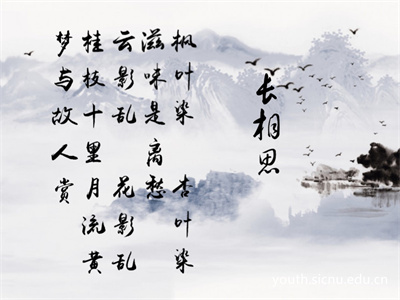 长相思
枫叶染 杏叶染
滋味是离愁
云影乱 花影乱
桂枝十里月流黄
梦与故人赏
youth.sicnu.edu.cn